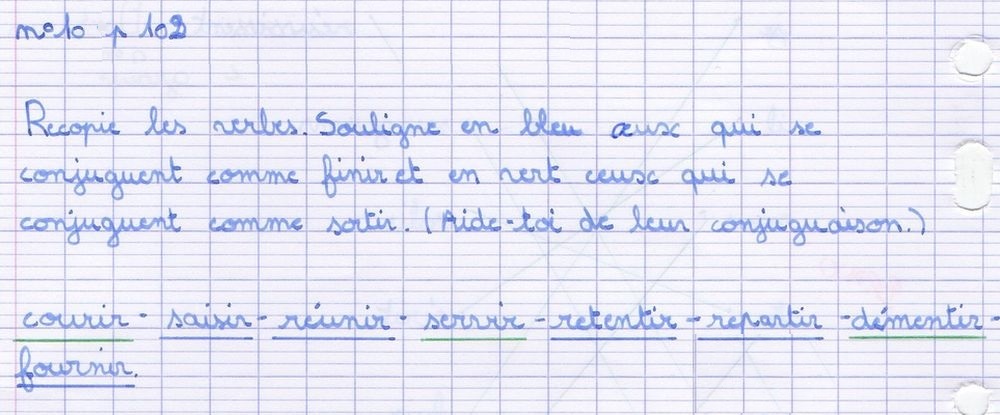 n°10 p 102
Recopie les verbes. Souligne en bleu ceux qui se
conjuguent comme finir et en vert ceux qui se
conjuguent comme sortir. (Aide-toi de leur conjuguaison.)
courir - saisir - réunir - servir - retentir - repartir - démentir -
fournir.